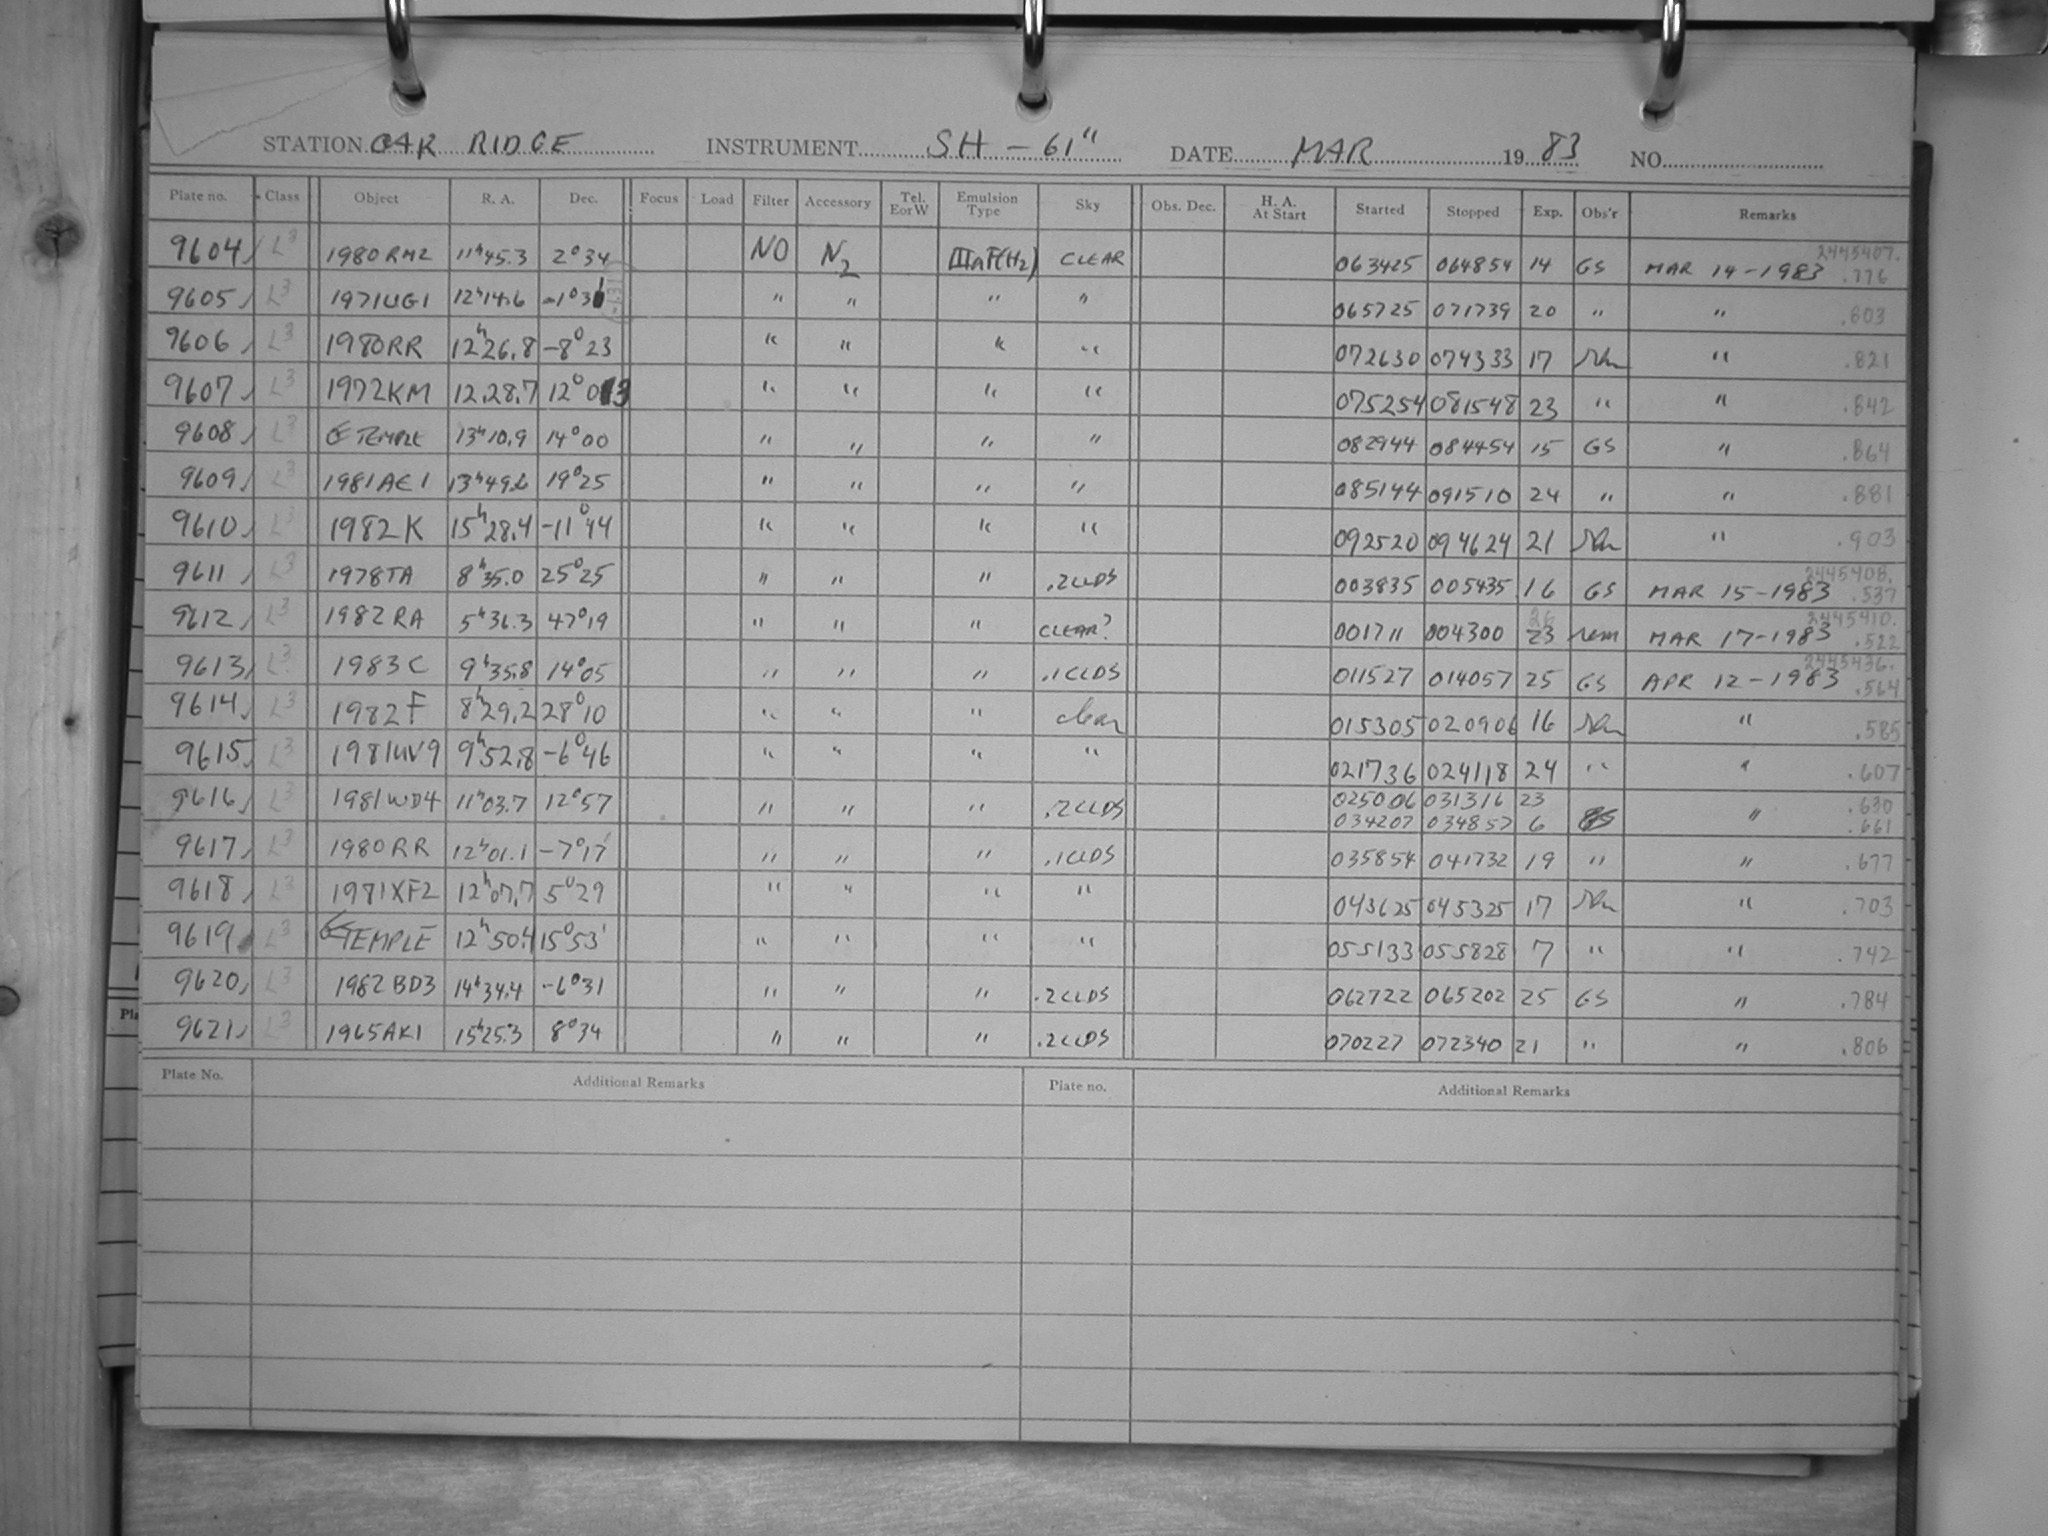 STATION OAK RIDGE INSTRUMENT SH - 61" DATE MAR 19 83 NO
Plate no. Class Object R. A. Dec. Focus Load Filter Accessory Tel. E or W Emulsion Type Sky Obs. Dec. H. A. At Start Started Stopped Exp. Obs'r Remarks
9604 L3 1980RM2 11h45.3 2°34 NO N2 IIIaF(H2) CLEAR 063425 064854 14 GS MAR 14-1983 2445407. .776
9605 L3 1971UG1 12h14.6 -1°31 " " " " 065725 071739 20 " " .803
9606 L3 1980RR 12h26.8 -8°23 " " " " 072630 074333 17 " .821
9607 L3 1972KM 12.28.7 12°03 " " " " 075254 081548 23 " " .842
9608 L3 TEMPLE 13h10.9 14°00 " " " " 082944 084454 15 GS " .864
9609 L3 1981AE1 13h49.6 19°25 " " " " 085144 091510 24 " " .881
9610 L3 1982K 15h28.4 -11°44 " " " " 092520 094624 21 " .903
9611 L3 1978TA 8h35.0 25°25 " " " .2CLDS 003835 005435 16 GS MAR 15-1983 2445408. .537
9612 L3 1982RA 5h36.3 47°19 " " " CLEAR? 001711 004300 26 23 rem MAR 17-1983 2445410. .522
9613 L3 1983C 9h35.8 14°05 " " " .1CLDS 011527 014057 25 GS APR 12-1983 2445436. .564
9614 L3 1982F 8h29.2 28°10 " " " clear 015305 020906 16 " .585
9615 L3 1981UV9 9h52.8 -6°46 " " " " 021736 024118 24 " " .607
9616 L3 1981WD4 11h03.7 12°57 " " " .2CLDS 025006 031316 23 " .630
034207 034857 6 .661
9617 L3 1980RR 12h01.1 -7°17' " " " .1CLDS 035854 041732 19 " " .677
9618 L3 1981XF2 12h07.7 5°29 " " " " 043625 045325 17 " .703
9619 L3 TEMPLE 12h50.4 15°53' " " " " 055133 055828 7 " " .742
9620 L3 1982BD3 14h34.4 -6°31 " " " .2CLDS 062722 065202 25 GS " .784
9621 L3 1965AK1 15h25.3 8°34 " " " .2CLDS 070227 072340 21 " " .806
Plate No. Additional Remarks Plate no. Additional Remarks